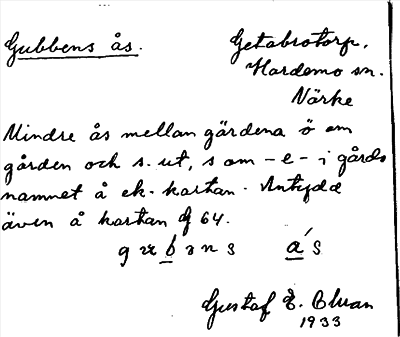 Gubbens ås. Getabrotorp.
Hardemo sn.
Närke
Mindre ås mellan gärdena ö om
gården och s. ut, som - e - i gårds
namnet å ek. kartan. Antydd
även å kartan G 64.
Gustaf E.
1933